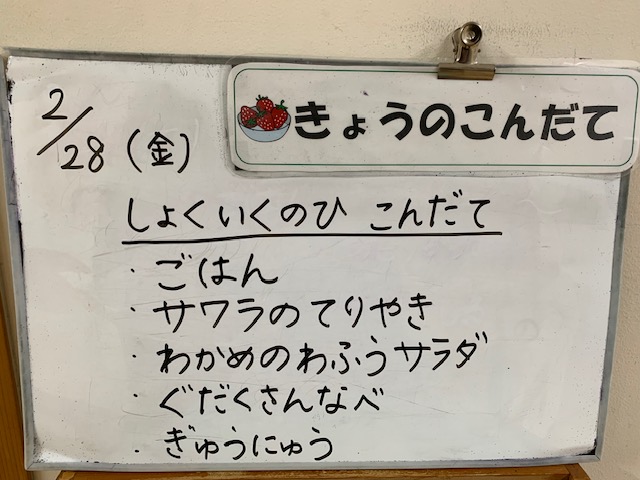 きょうのこんだて
2/28(金)
しょくいくのひ こんだて
・ごはん
・サワラのてりやき
・わかめのわふうサラダ
・ぐだくさんなべ
・ぎゅうにゅう